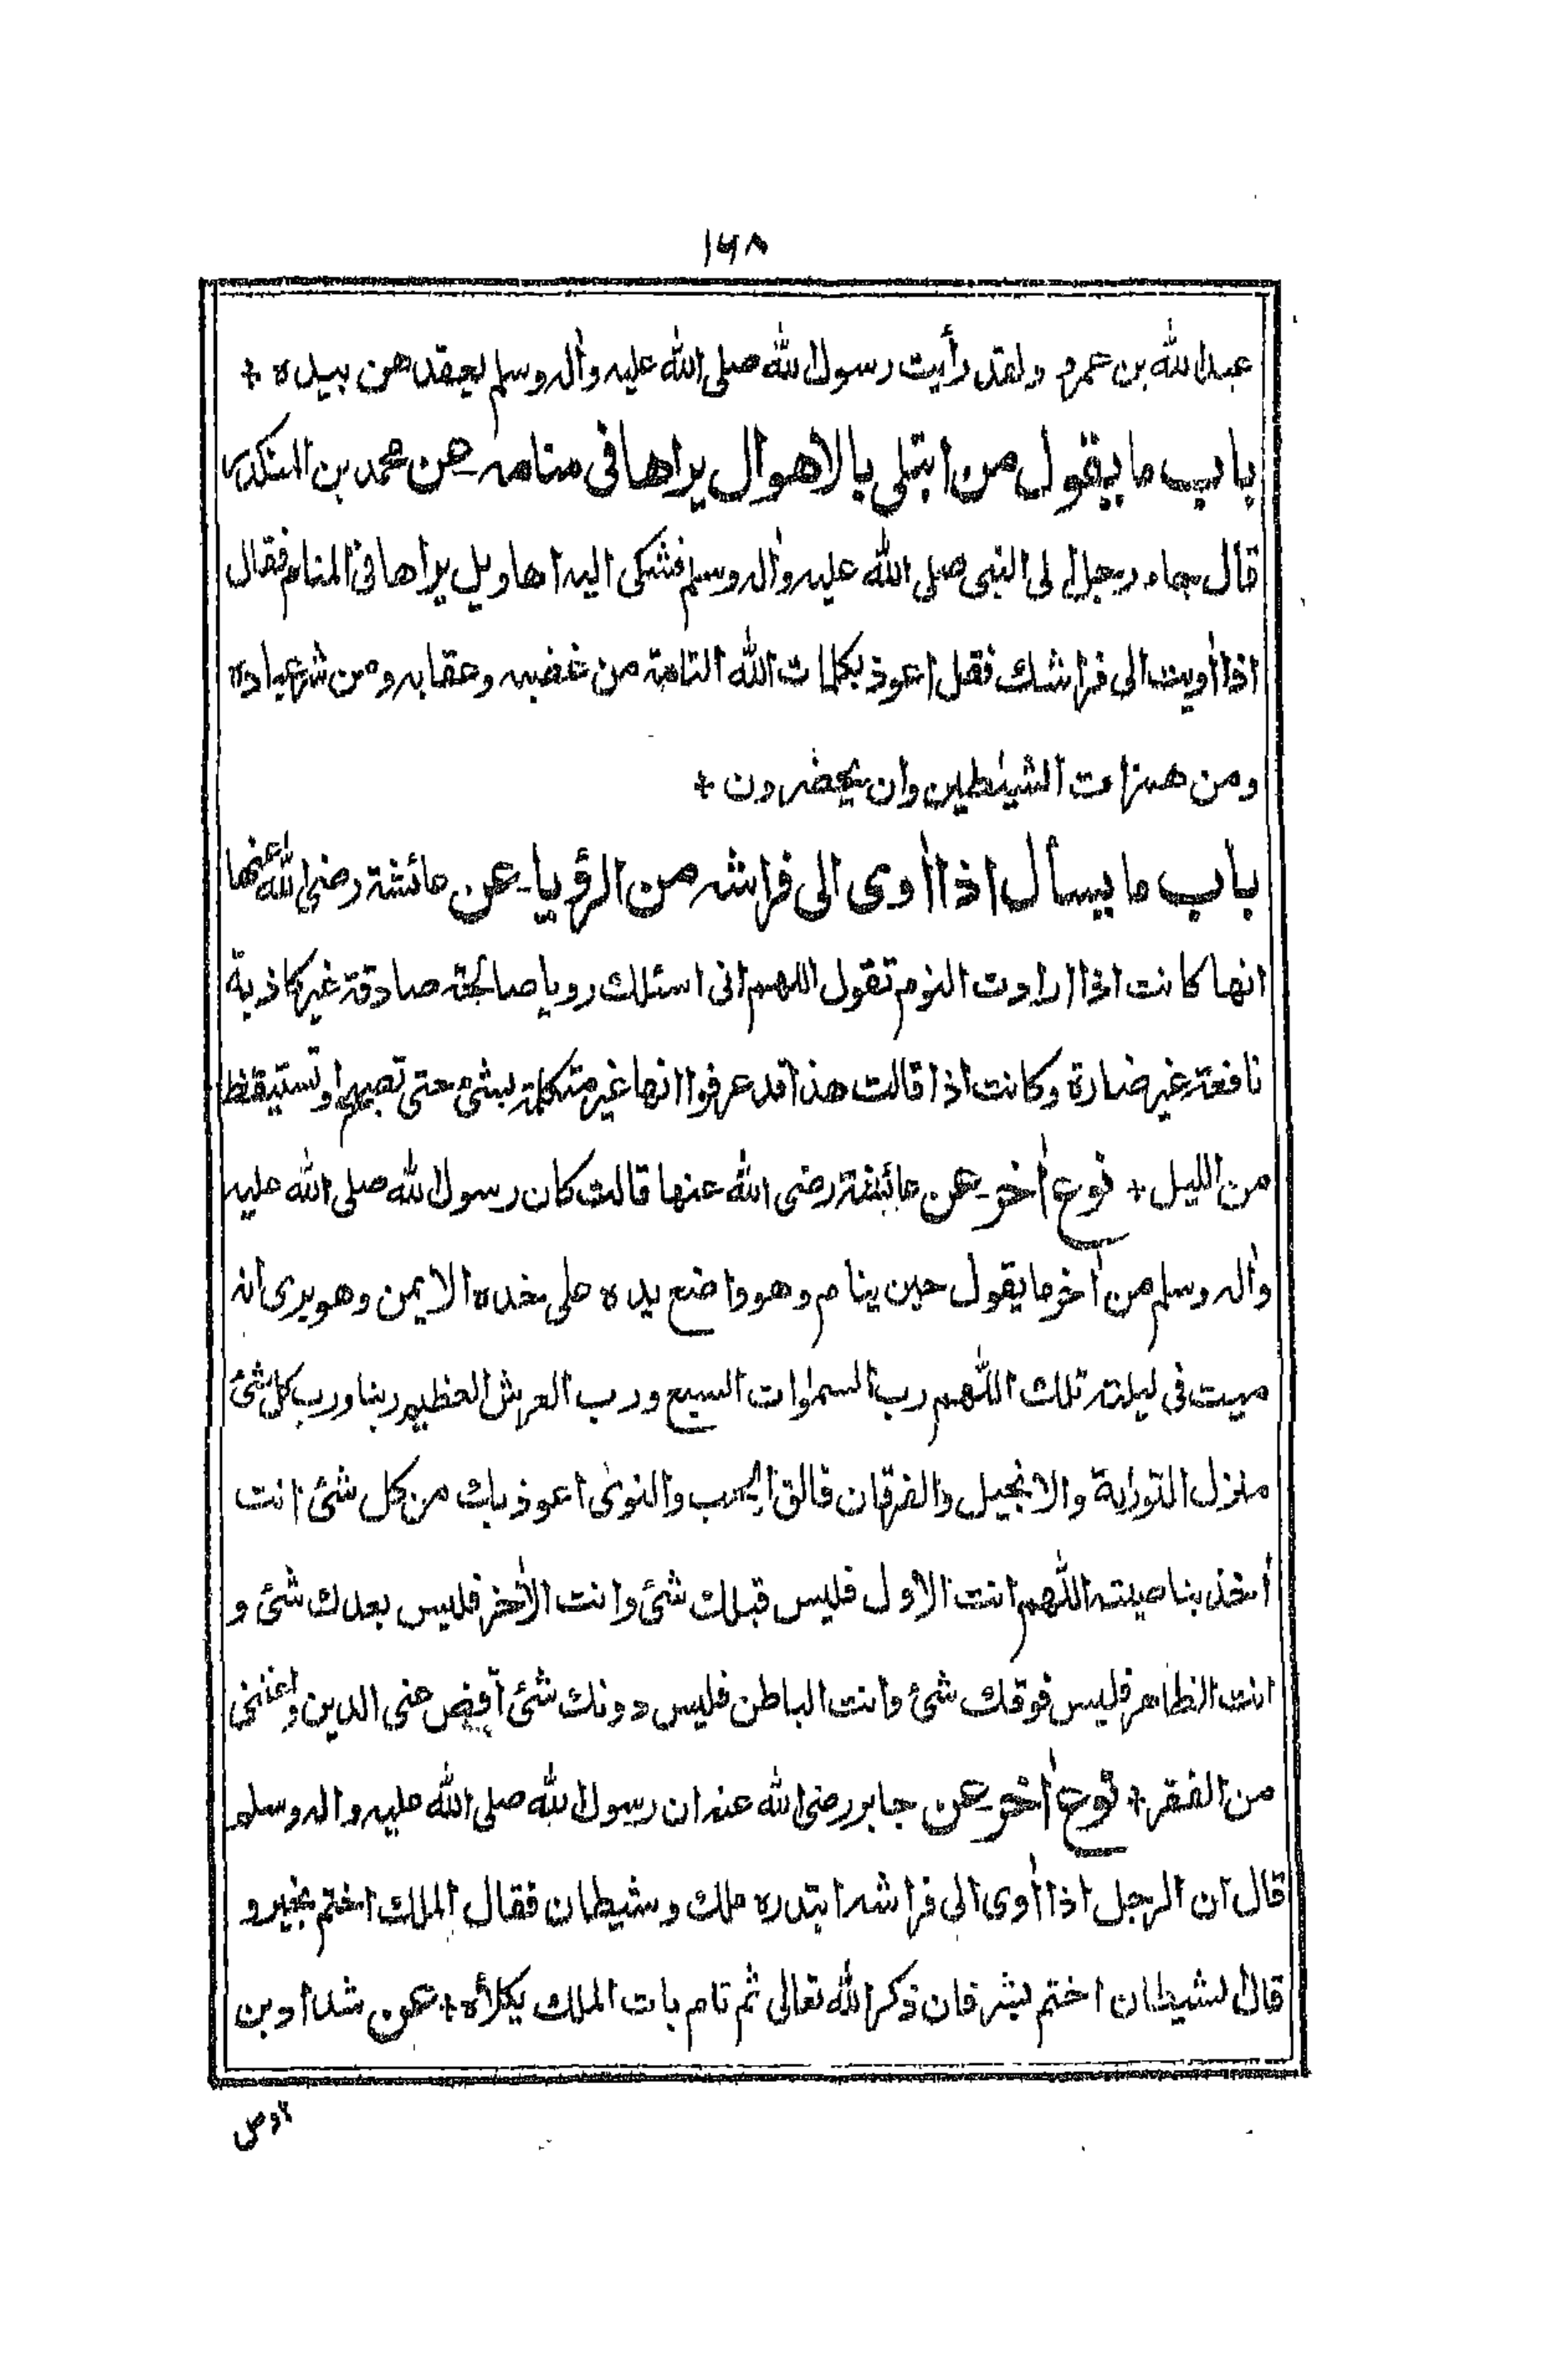 ١٦٨
عبدالله بن عمرو ولقد رأيت رسول الله صلى الله عليه وآله وسلم يعقدهن بيده +
باب ما يقول من ابتلى بالاهوال يراها فى منامه عن محمد بن المنكدر
قال جاء رجل الى النبى صلى الله عليه وآله وسلم فشكى اليه اهاويل يراها فى المنام فقال
اذا أويت الى فراشك فقل اعوذ بكلمات الله التامة من غضبه وعقابه ومن شر عباده
ومن همزات الشيٰطين وان يحضرون +
باب ما يسأل اذا أوى الى فراشه من الرؤيا عن عائشة رضي الله عنها
انها كانت اذا ارادت النوم تقول اللهم انى اسئلك رويا صالحة صادقة غير كاذبة
نافعة غير ضارة وكانت اذا قالت هذا قد عرفوا انها غير متكلمة بشئ حتى تصبح او تستيقظ
من الليل + نوع أخر عن عائشة رضى الله عنها قالت كان رسول الله صلى الله عليه
وآله وسلم من أخر ما يقول حين ينام وهو واضع يده على خده الايمن وهو يرى انه
ميت فى ليلته تلك اللهم رب السمٰوات السبع ورب العرش العظيم ربنا ورب كل شئ
منزل التورٰية والانجيل والفرقان فالق الحب والنوىٰ اعوذ بك من كل شئ انت
أخذ بناصيته اللهم انت الاول فليس قبلك شئ وانت الأخر فليس بعدك شئ و
انت الظاهر فليس فوقك شئ وانت الباطن فليس دونك شئ أقض عنى الدين واغننى
من الفقر + نوع أخر عن جابر رضى الله عنه ان رسول الله صلى الله عليه واله وسلم
قال ان الرجل اذا أوى الى فراشه ابتدره ملك وشيطان فقال الملك اختم بخير و
قال الشيطان اختم بشر فان ذكر الله تعالى ثم نام بات الملك يكلأه + عن شداد بن
اوس